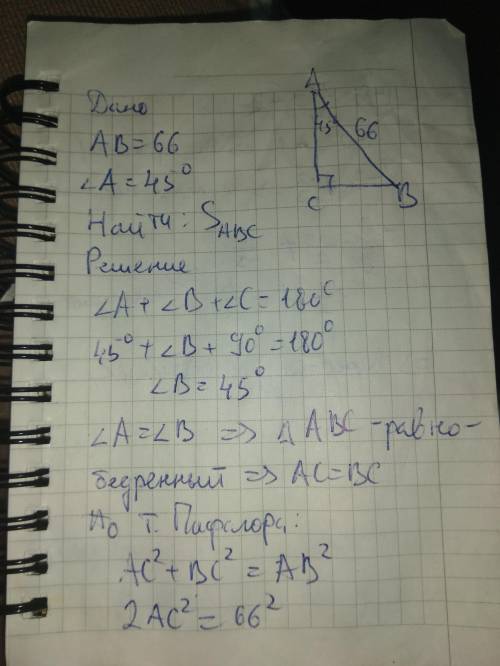 Дано
AB=66
∠A=45°
Найти: S_ABC
Решение
A
45
66
C
B
∠A+∠B+∠C=180°
45°+∠B+90°=180°
∠B=45°
∠A=∠B => Δ ABC -равно-
бедренный => AC=BC
По т. Пифагора:
AC²+BC²=AB²
2AC²=66²